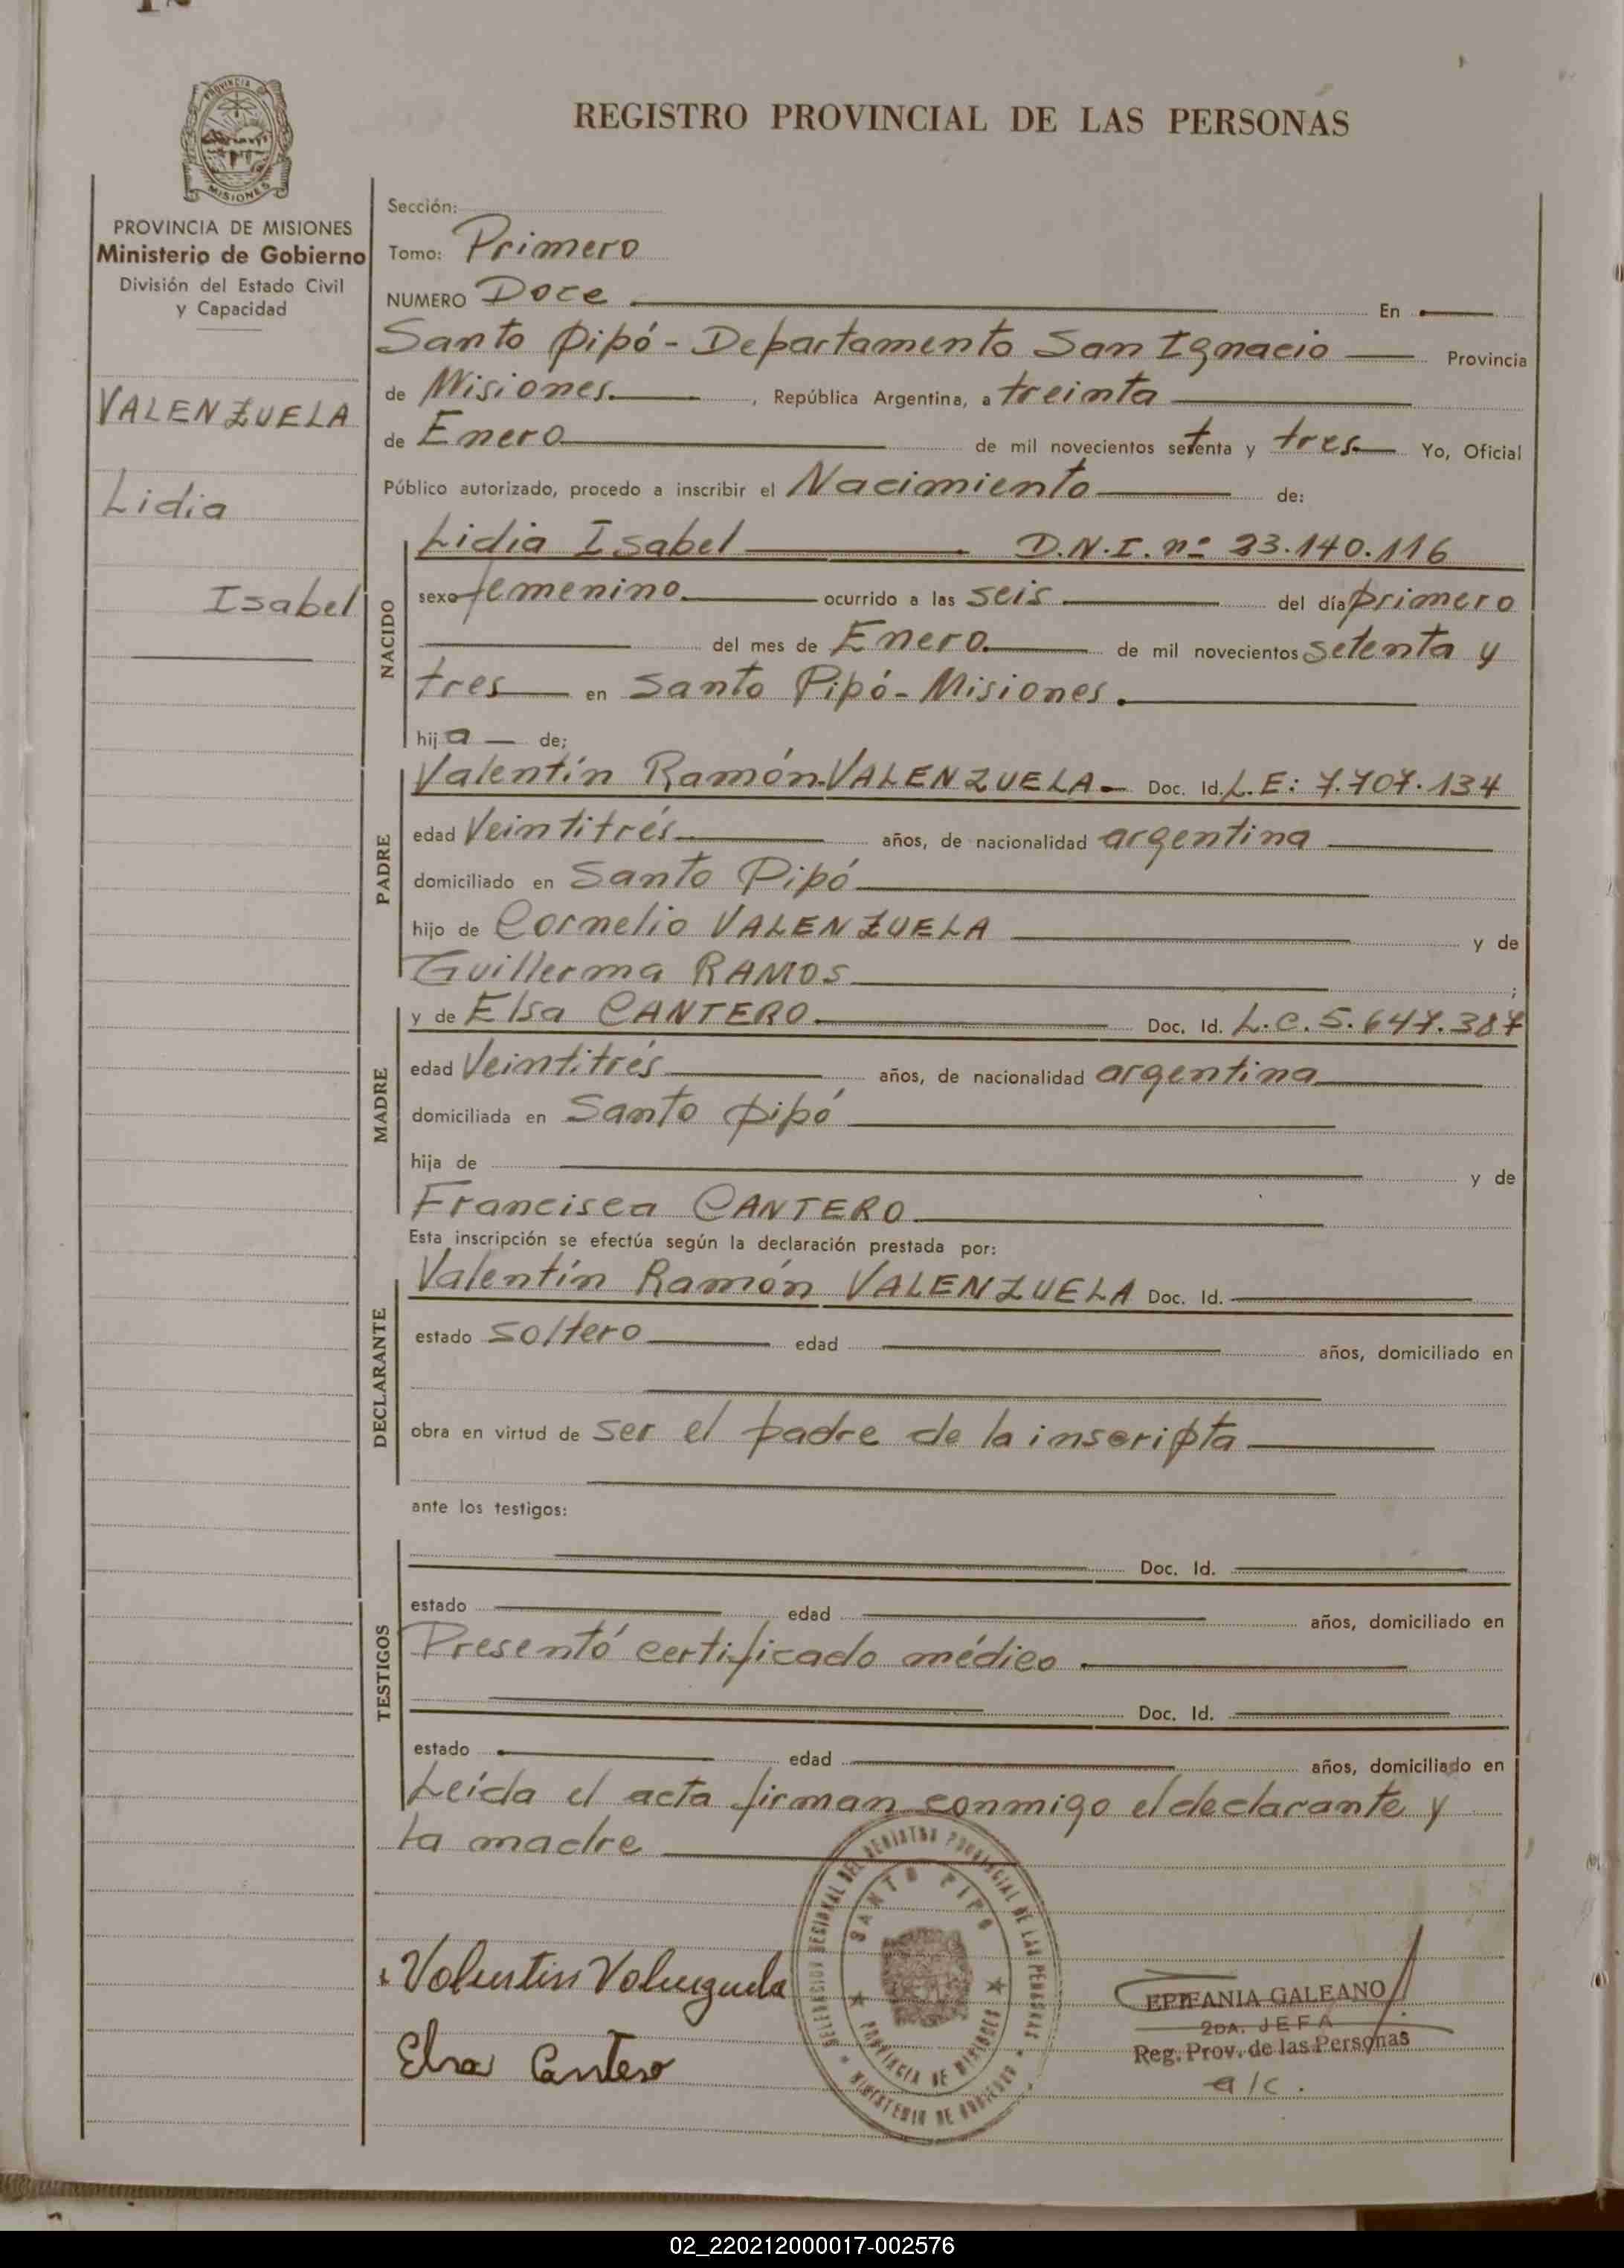 REGISTRO PROVINCIAL DE LAS PERSONAS
PROVINCIA
MISIONES
PROVINCIA DE MISIONES
Ministerio de Gobierno
División del Estado Civil
y Capacidad
VALENZUELA
Lidia
Isabel
Sección:
Tomo: Primero
NUMERO Doce En
Santo Pipó - Departamento San Ignacio Provincia
de Misiones. , República Argentina, a treinta
de Enero de mil novecientos setenta y tres Yo, Oficial
Público autorizado, procedo a inscribir el Nacimiento de:
NACIDO
Lidia Isabel D.N.I. nº 23.140.116
sexo femenino ocurrido a las seis del día primero
del mes de Enero de mil novecientos setenta y
tres en Santo Pipó - Misiones.
hija de;
PADRE
Valentín Ramón VALENZUELA Doc. Id. L.E: 7.707.134
edad Veintitrés años, de nacionalidad argentina
domiciliado en Santo Pipó
hijo de Cornelio VALENZUELA y de
Guillerma RAMOS ;
MADRE
y de Elsa CANTERO Doc. Id. L.C. 5.647.387
edad Veintitrés años, de nacionalidad argentina
domiciliada en Santo Pipó
hija de y de
Francisca CANTERO
Esta inscripción se efectúa según la declaración prestada por:
DECLARANTE
Valentín Ramón VALENZUELA Doc. Id.
estado soltero edad años, domiciliado en
obra en virtud de ser el padre de la inscripta
ante los testigos:
TESTIGOS
Doc. Id.
estado edad años, domiciliado en
Presentó certificado médico
Doc. Id.
estado edad años, domiciliado en
Leída el acta firman conmigo el declarante y
la madre
DELEGACION REGIONAL DEL REGISTRO PROVINCIAL DE LAS PERSONAS
SANTO PIPO
PROVINCIA DE MISIONES
MINISTERIO DE GOBIERNO
Valentin Valenzuela
Elsa Cantero
EPIFANIA GALEANO
2DA. JEFA
Reg. Prov. de las Personas
a/c.
02_220212000017-002576